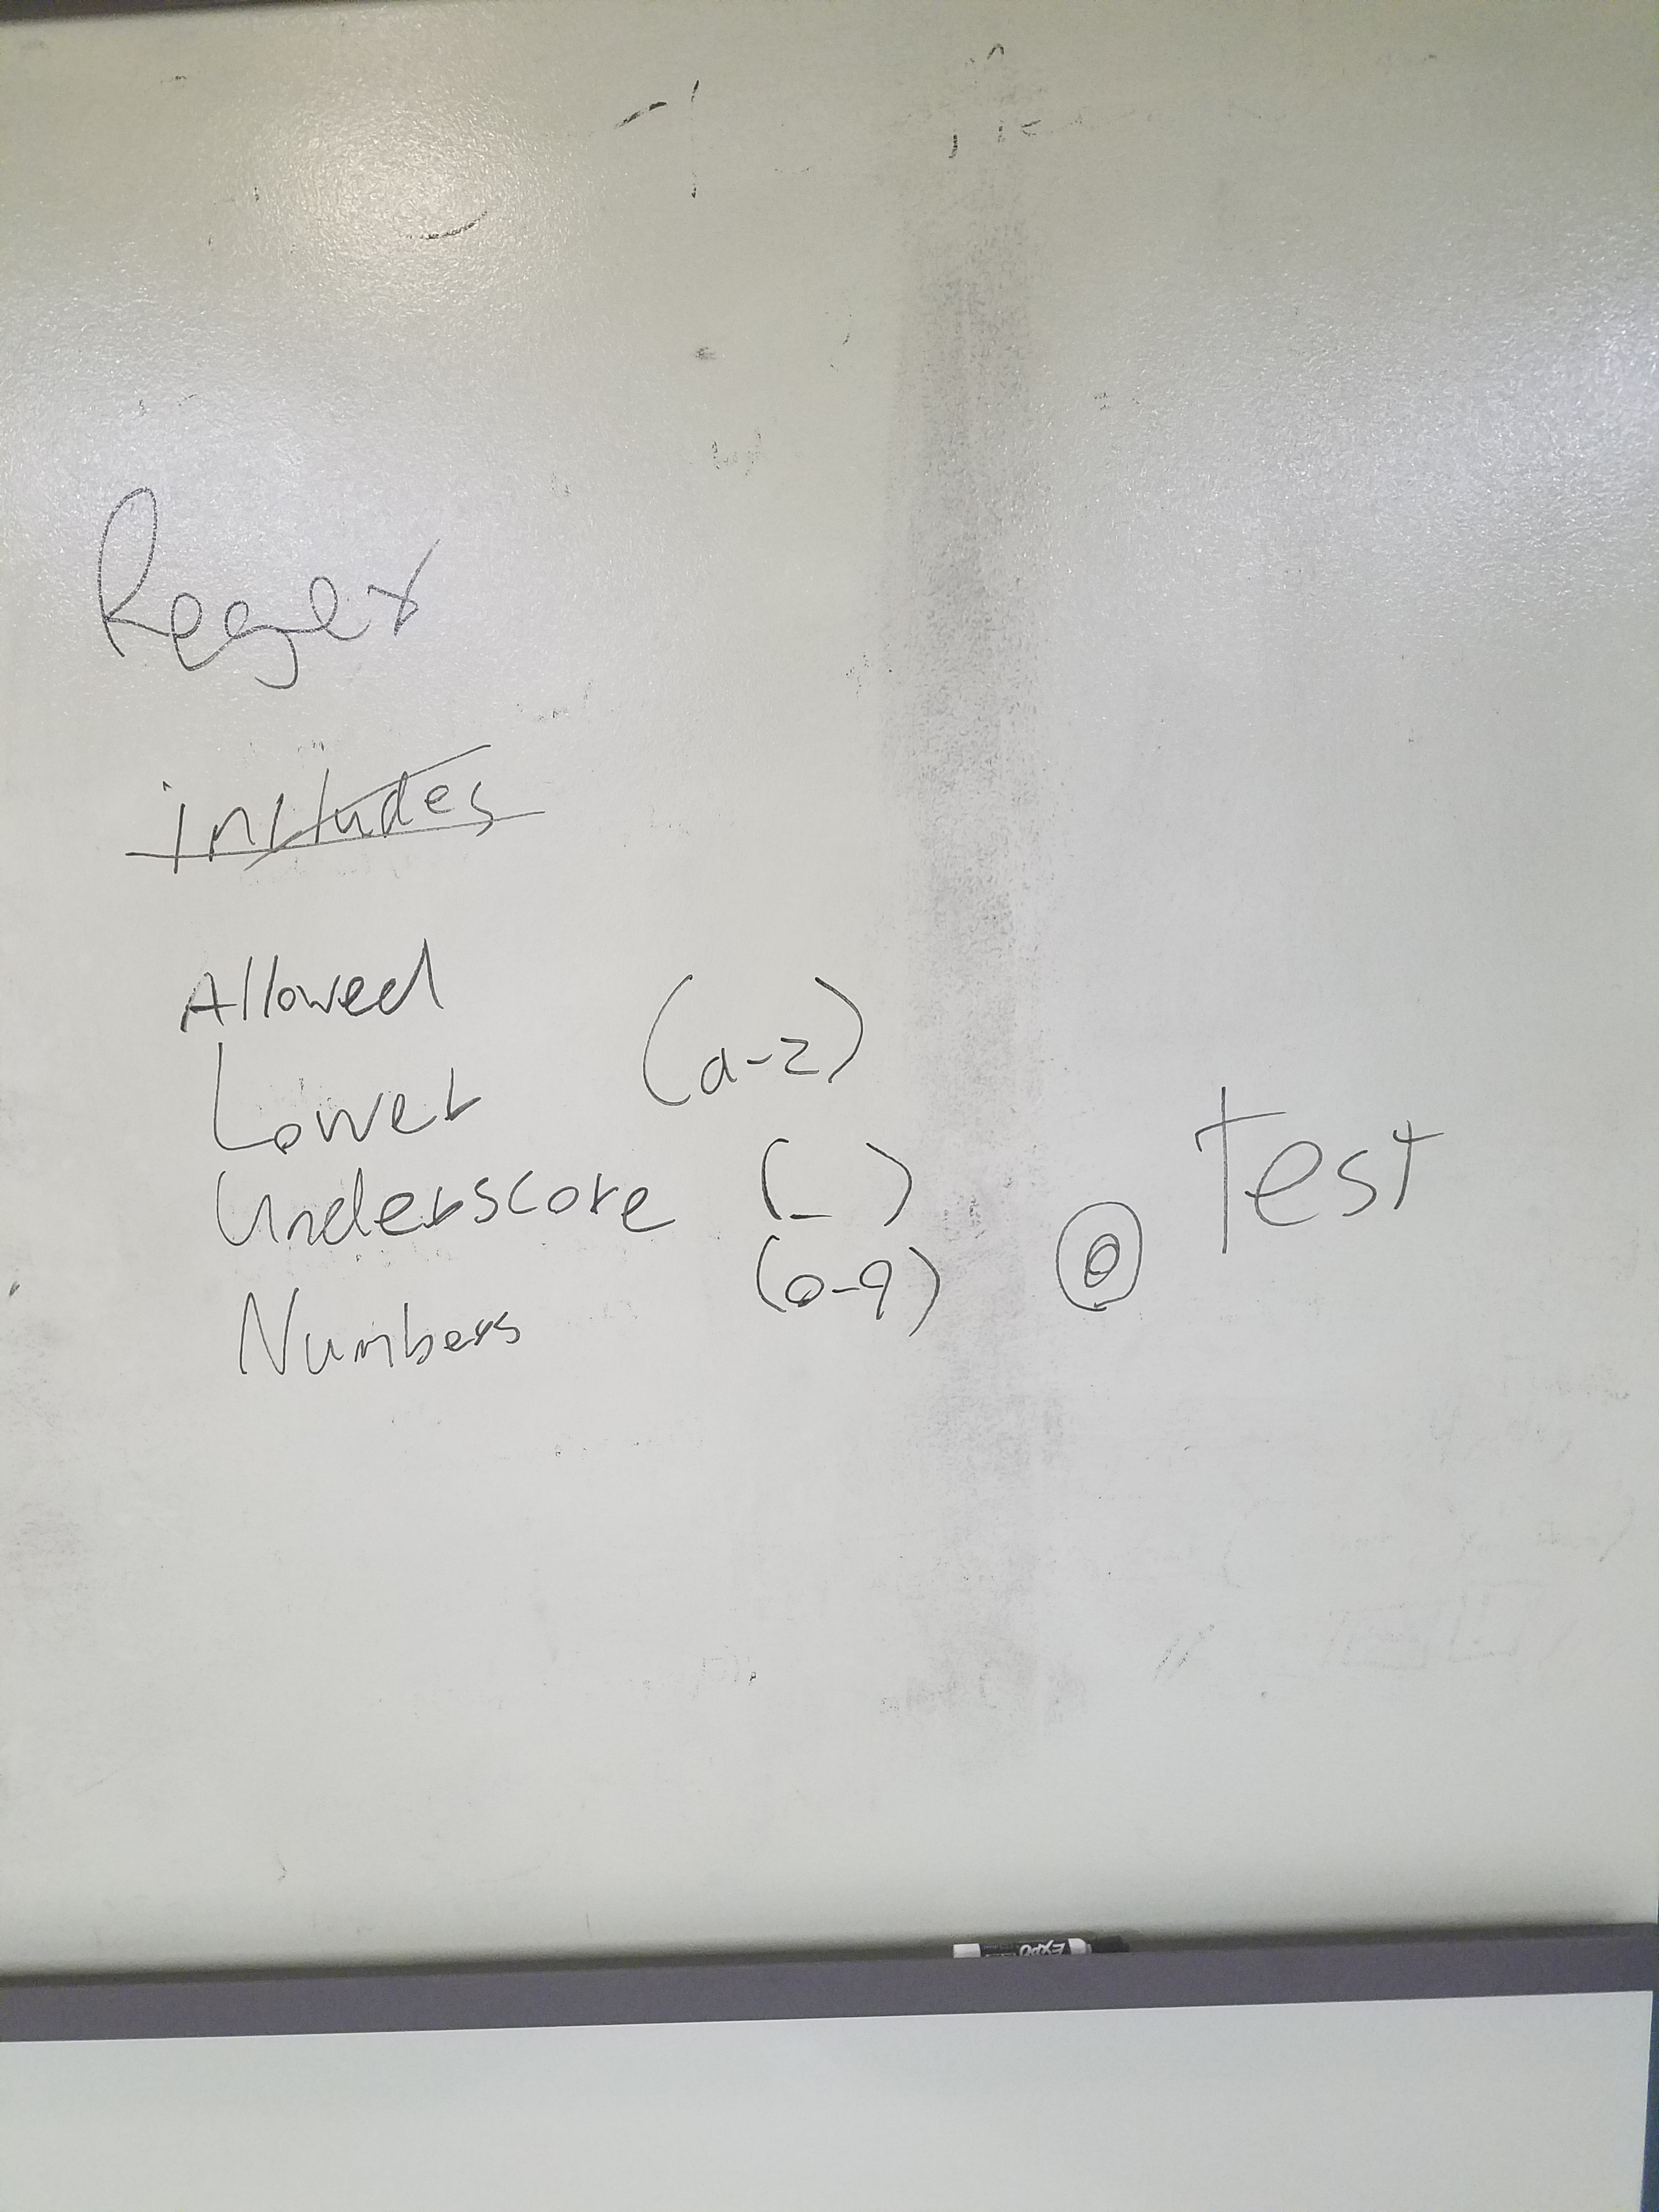 Regex
includes
Allowed
Lower (a-z)
Underscore (_)
Numbers (0-9)
Test
EXPO